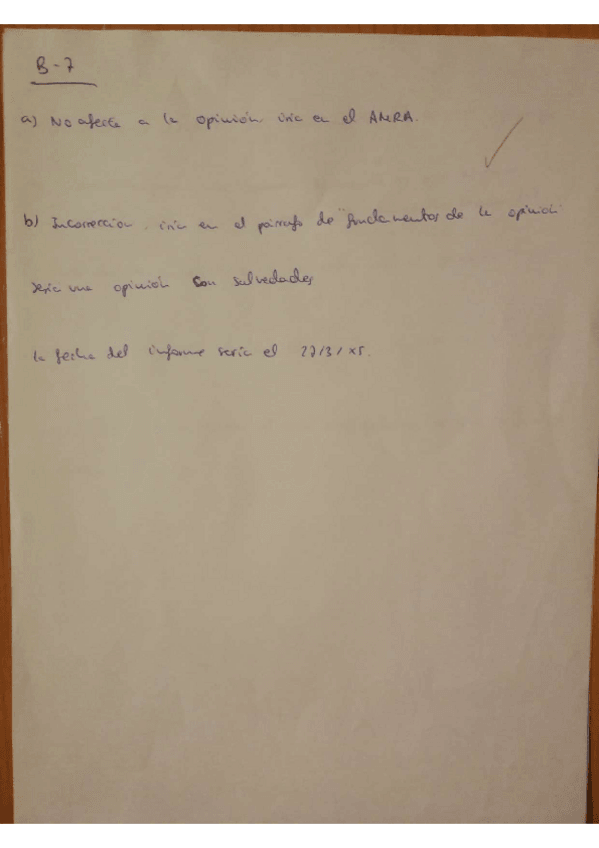 B-7
a) No afecta a la opinión, iría en el AMRA.
b) Incorrección, iría en el párrafo de "fundamentos de la opinión"
sería una opinión con salvedades
la fecha del informe sería el 27/3/x5.